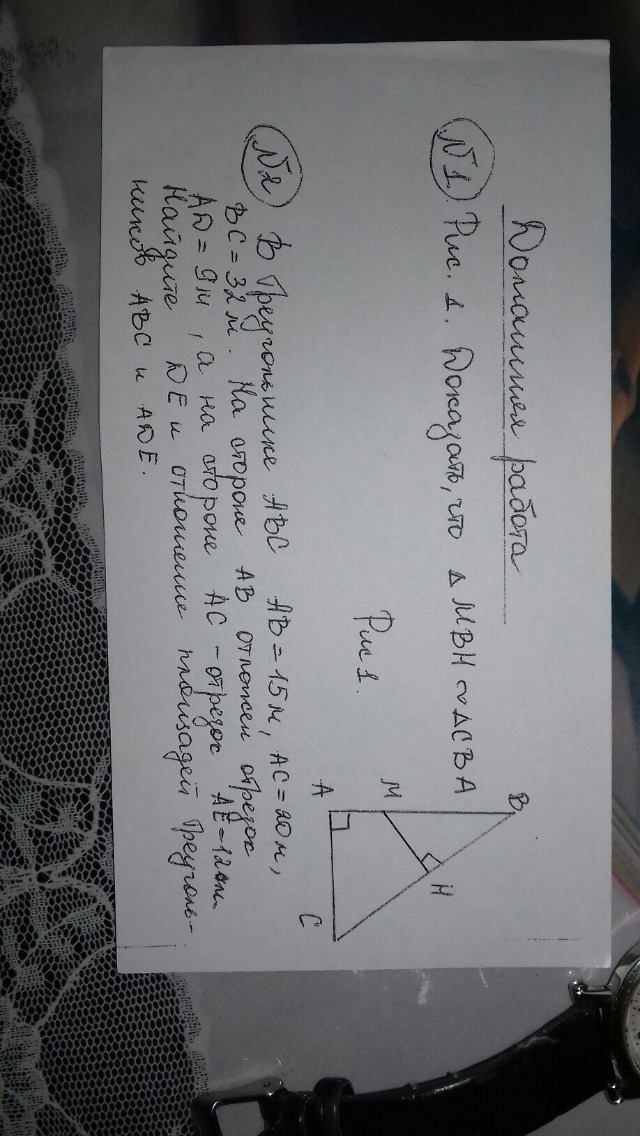 Домашняя работа
№1. Рис. 1. Доказать, что △ MBH ∾ △CBA
Рис 1.
B
M
H
A
C
№2 В треугольнике ABC AB = 15 м, AC = 20 м,
BC = 32 м. На стороне AB отложен отрезок
AD = 9 м, а на стороне AC - отрезок AE = 12 м.
Найдите DE и отношение площадей треуголь-
ников ABC и ADE.